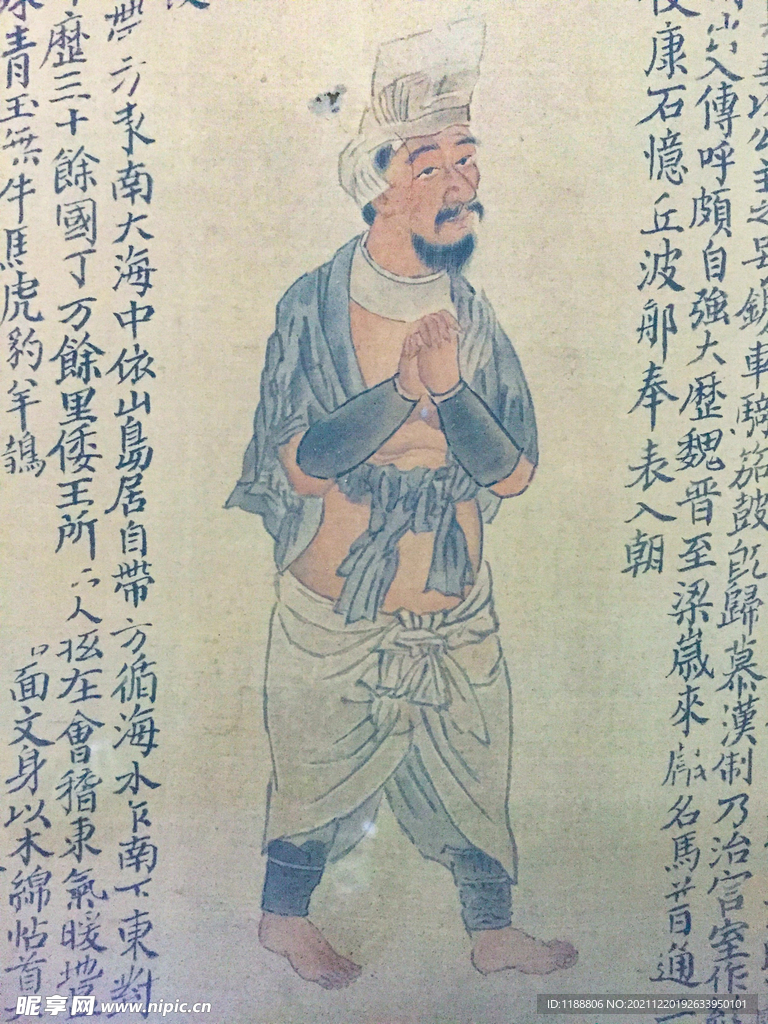 以公主之号錫車騎笳鼓旣歸慕漢制乃治宮室作
出入傳呼頗自強大歷魏晉至梁嵗來獻名馬普通
康石憶丘波郍奉表入朝
方東南大海中依山島居自帶方循海水乍南下東對
歷三十餘國丁万餘里倭王所人在會稽東氣暖地
青玉無牛馬虎豹羊鵲面文身以木綿帖首
昵享网 www.nipic.cn
ID:1188806 NO:20211220192633950101